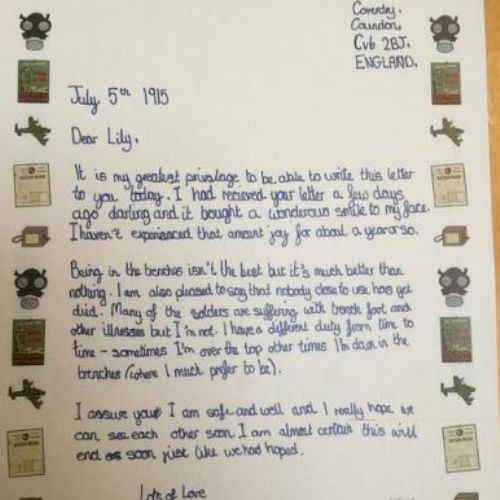 Coventry.
Coundon,
Cv6 2BJ.
ENGLAND.
July 5th 1915
Dear Lily,
It is my greatest privalage to be able to write this letter
to you today. I had recieved your letter a few days
ago darling and it bought a wonderous smile to my face.
I haven't experianced that amount joy for about a year or so.
Being in the trenches isn't the best but it's much better than
nothing. I am also pleased to say that nobody close to use has yet
died. Many of the solders are suffering with trench foot and
other illnesses but I'm not. I have a different duty from time to
time - sometimes I'm over the top other times I'm down in the
trenches (where I much prefer to be).
I assure you I am safe and well and I really hope we
can see each other soon I am almost certain this will
end as soon just like we had hoped.
Lots of Love